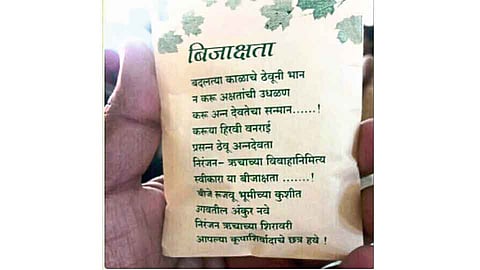 बिजाक्षता
बदलत्या काळाचे ठेवूनी भान
न करू अक्षतांची उधळण
करू अन्न देवतेचा सन्मान......!
करूया हिरवी वनराई
प्रसन्न ठेवू अन्नदेवता
निरंजन- ऋचाच्या विवाहानिमित्य
स्वीकारा या बीजाक्षता .......!
बीजे रूजवू भूमीच्या कुशीत
उगवतील अंकुर नवे
निरंजन ऋचाच्या शिरावरी
आपल्या कृपाशिर्वादाचे छत्र हवे !